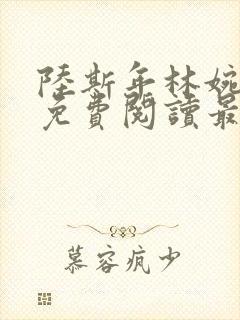 陸斯年林婉
免費閱讀最
慕容疯少